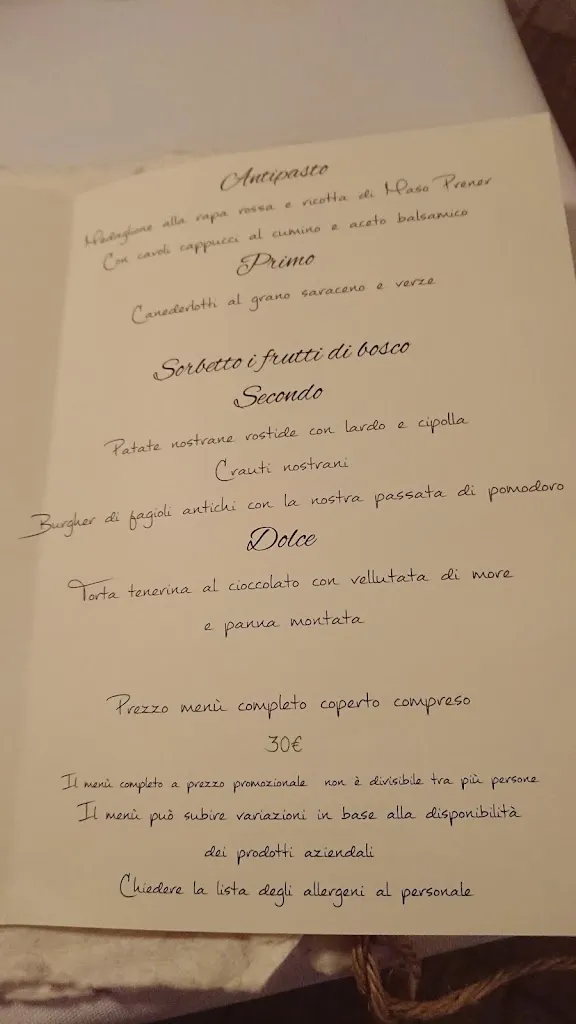 Antipasto
Medaglione alla rapa rossa e ricotta di Maso Prener
Con cavoli cappucci al cumino e aceto balsamico
Primo
Canederlotti al grano saraceno e verze
Sorbetto i frutti di bosco
Secondo
Patate nostrane rostide con lardo e cipolla
Crauti nostrani
Burgher di fagioli antichi con la nostra passata di pomodoro
Dolce
Torta tenerina al cioccolato con vellutata di more
e panna montata
Prezzo menù completo coperto compreso
30€
Il menù completo a prezzo promozionale non è divisibile tra più persone
Il menù può subire variazioni in base alla disponibilità
dei prodotti aziendali
Chiedere la lista degli allergeni al personale